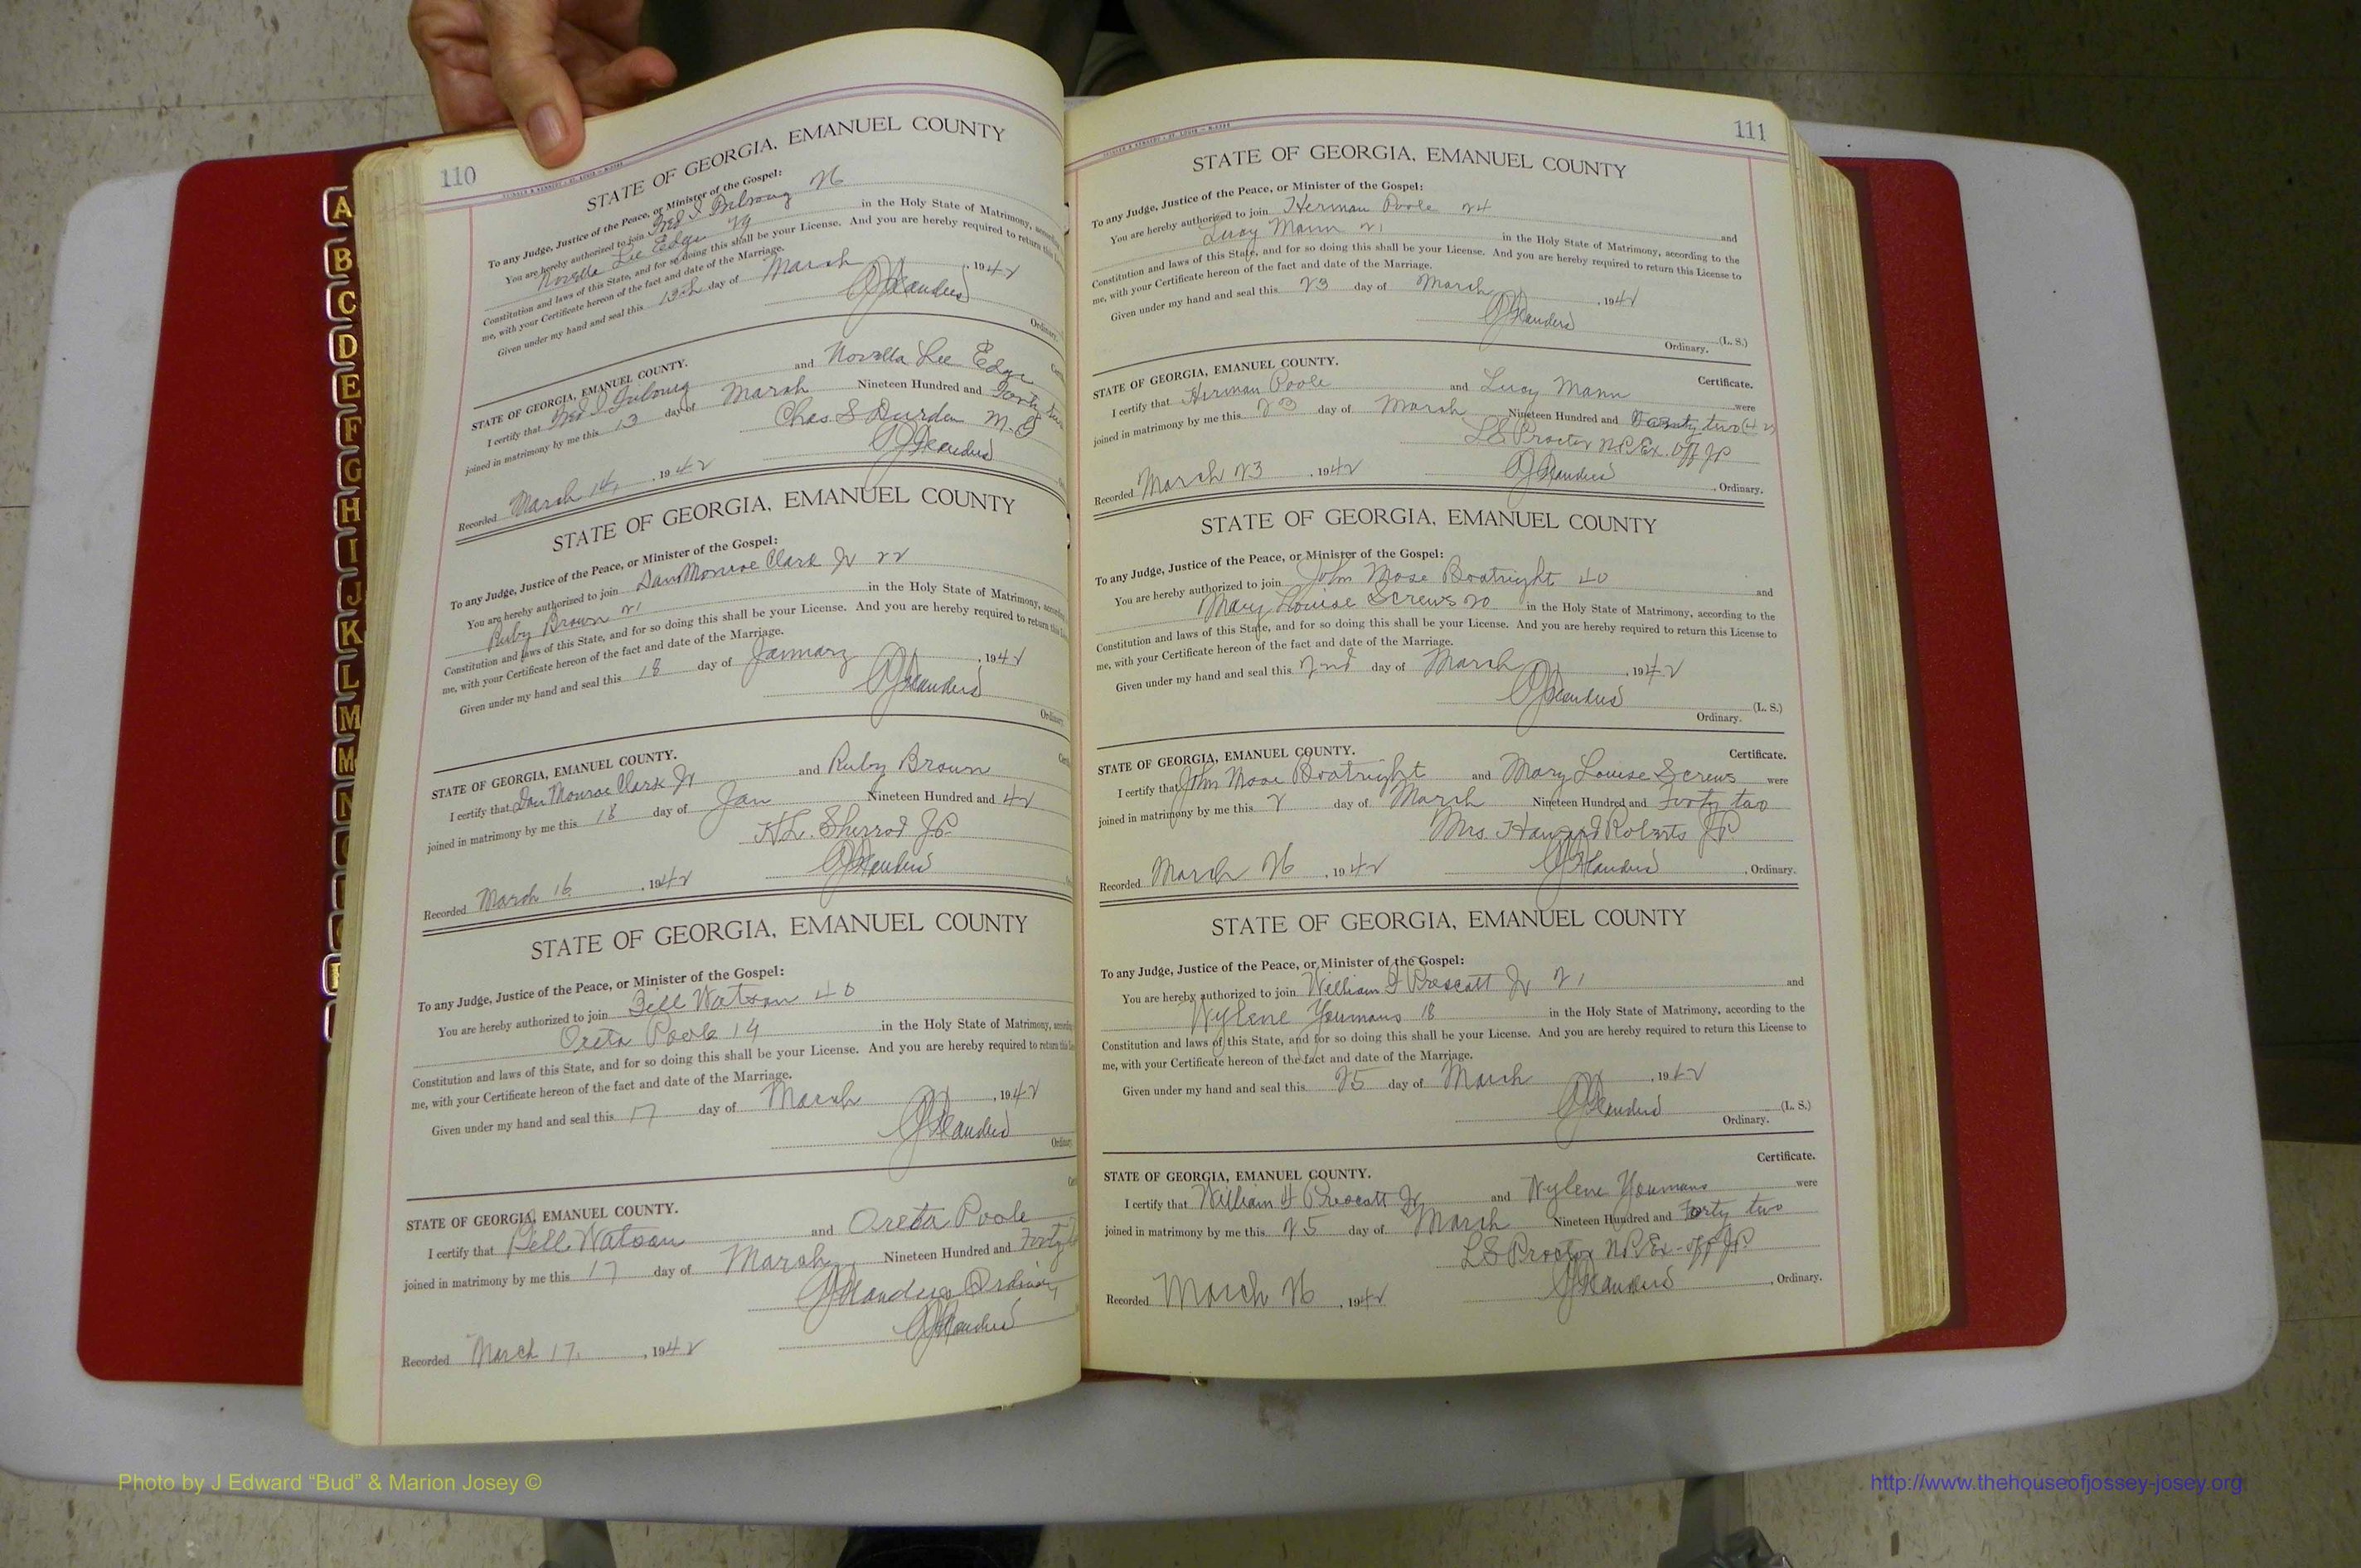 110
STATE OF GEORGIA, EMANUEL COUNTY
To any Judge, Justice of the Peace, or Minister of the Gospel:
You are hereby authorized to join Fred 26
Novella Lee Edge 29 in the Holy State of Matrimony,
Constitution and laws of this State, and for so doing this shall be your License. And you are hereby required to return this
me, with your Certificate hereon of the fact and date of the Marriage.
Given under my hand and seal this 13th day of March, 1942
Ordinary.
STATE OF GEORGIA, EMANUEL COUNTY.
I certify that Fred and Novella Lee Edge
joined in matrimony by me this 13 day of March Nineteen Hundred and Forty two
Chas. S Durden M. G
Recorded March 14, 1942
STATE OF GEORGIA, EMANUEL COUNTY
To any Judge, Justice of the Peace, or Minister of the Gospel:
You are hereby authorized to join Dan Monroe Clark Jr 22
Ruby Brown 21 in the Holy State of Matrimony,
Constitution and laws of this State, and for so doing this shall be your License. And you are hereby required to return this
me, with your Certificate hereon of the fact and date of the Marriage.
Given under my hand and seal this 18 day of January, 1942
Ordinary
STATE OF GEORGIA, EMANUEL COUNTY.
I certify that Dan Monroe Clark Jr and Ruby Brown
joined in matrimony by me this 18 day of Jan Nineteen Hundred and 42
H.L. Sherrod J.P.
Recorded March 16, 1942
STATE OF GEORGIA, EMANUEL COUNTY
To any Judge, Justice of the Peace, or Minister of the Gospel:
You are hereby authorized to join Bell Watson 40
Oreta Poole 19 in the Holy State of Matrimony,
Constitution and laws of this State, and for so doing this shall be your License. And you are hereby required to return this
me, with your Certificate hereon of the fact and date of the Marriage.
Given under my hand and seal this 17 day of March, 1942
Ordinary
STATE OF GEORGIA, EMANUEL COUNTY.
I certify that Bell Watson and Oreta Poole
joined in matrimony by me this 17 day of March Nineteen Hundred and Forty
Ordinary
Recorded March 17, 1942
111
STATE OF GEORGIA, EMANUEL COUNTY
To any Judge, Justice of the Peace, or Minister of the Gospel:
You are hereby authorized to join Herman Poole 24 and
Lucy Mann 21 in the Holy State of Matrimony, according to the
Constitution and laws of this State, and for so doing this shall be your License. And you are hereby required to return this License to
me, with your Certificate hereon of the fact and date of the Marriage.
Given under my hand and seal this 23 day of March, 1942
(L. S.)
Ordinary.
STATE OF GEORGIA, EMANUEL COUNTY. Certificate.
I certify that Herman Poole and Lucy Mann were
joined in matrimony by me this 23 day of March Nineteen Hundred and two (42)
L S Proctor N.P. Ex. Off JP
Recorded March 23, 1942 Ordinary.
STATE OF GEORGIA, EMANUEL COUNTY
To any Judge, Justice of the Peace, or Minister of the Gospel:
You are hereby authorized to join John Mose Boatright 40 and
Mary Louise Screws 20 in the Holy State of Matrimony, according to the
Constitution and laws of this State, and for so doing this shall be your License. And you are hereby required to return this License to
me, with your Certificate hereon of the fact and date of the Marriage.
Given under my hand and seal this 2nd day of March, 1942
(L. S.)
Ordinary.
STATE OF GEORGIA, EMANUEL COUNTY. Certificate.
I certify that John Mose Boatright and Mary Louise Screws were
joined in matrimony by me this 2 day of March Nineteen Hundred and Forty two
Mrs. Roberts J.P.
Recorded March 26, 1942 Ordinary.
STATE OF GEORGIA, EMANUEL COUNTY
To any Judge, Justice of the Peace, or Minister of the Gospel:
You are hereby authorized to join William Prescott Jr 21 and
Wylene Youmans 18 in the Holy State of Matrimony, according to the
Constitution and laws of this State, and for so doing this shall be your License. And you are hereby required to return this License to
me, with your Certificate hereon of the fact and date of the Marriage.
Given under my hand and seal this 25 day of March, 1942
(L. S.)
Ordinary.
Certificate.
STATE OF GEORGIA, EMANUEL COUNTY.
I certify that William Prescott Jr and Wylene Youmans were
joined in matrimony by me this 25 day of March Nineteen Hundred and Forty two
L S Proctor N.P. Ex-off J.P.
Recorded March 26, 1942 Ordinary.
A
B
C
D
E
F
G
H
I
J
K
L
M
M
N
Photo by J Edward “Bud” & Marion Josey ©
http://www.thehouseofjossey-josey.org